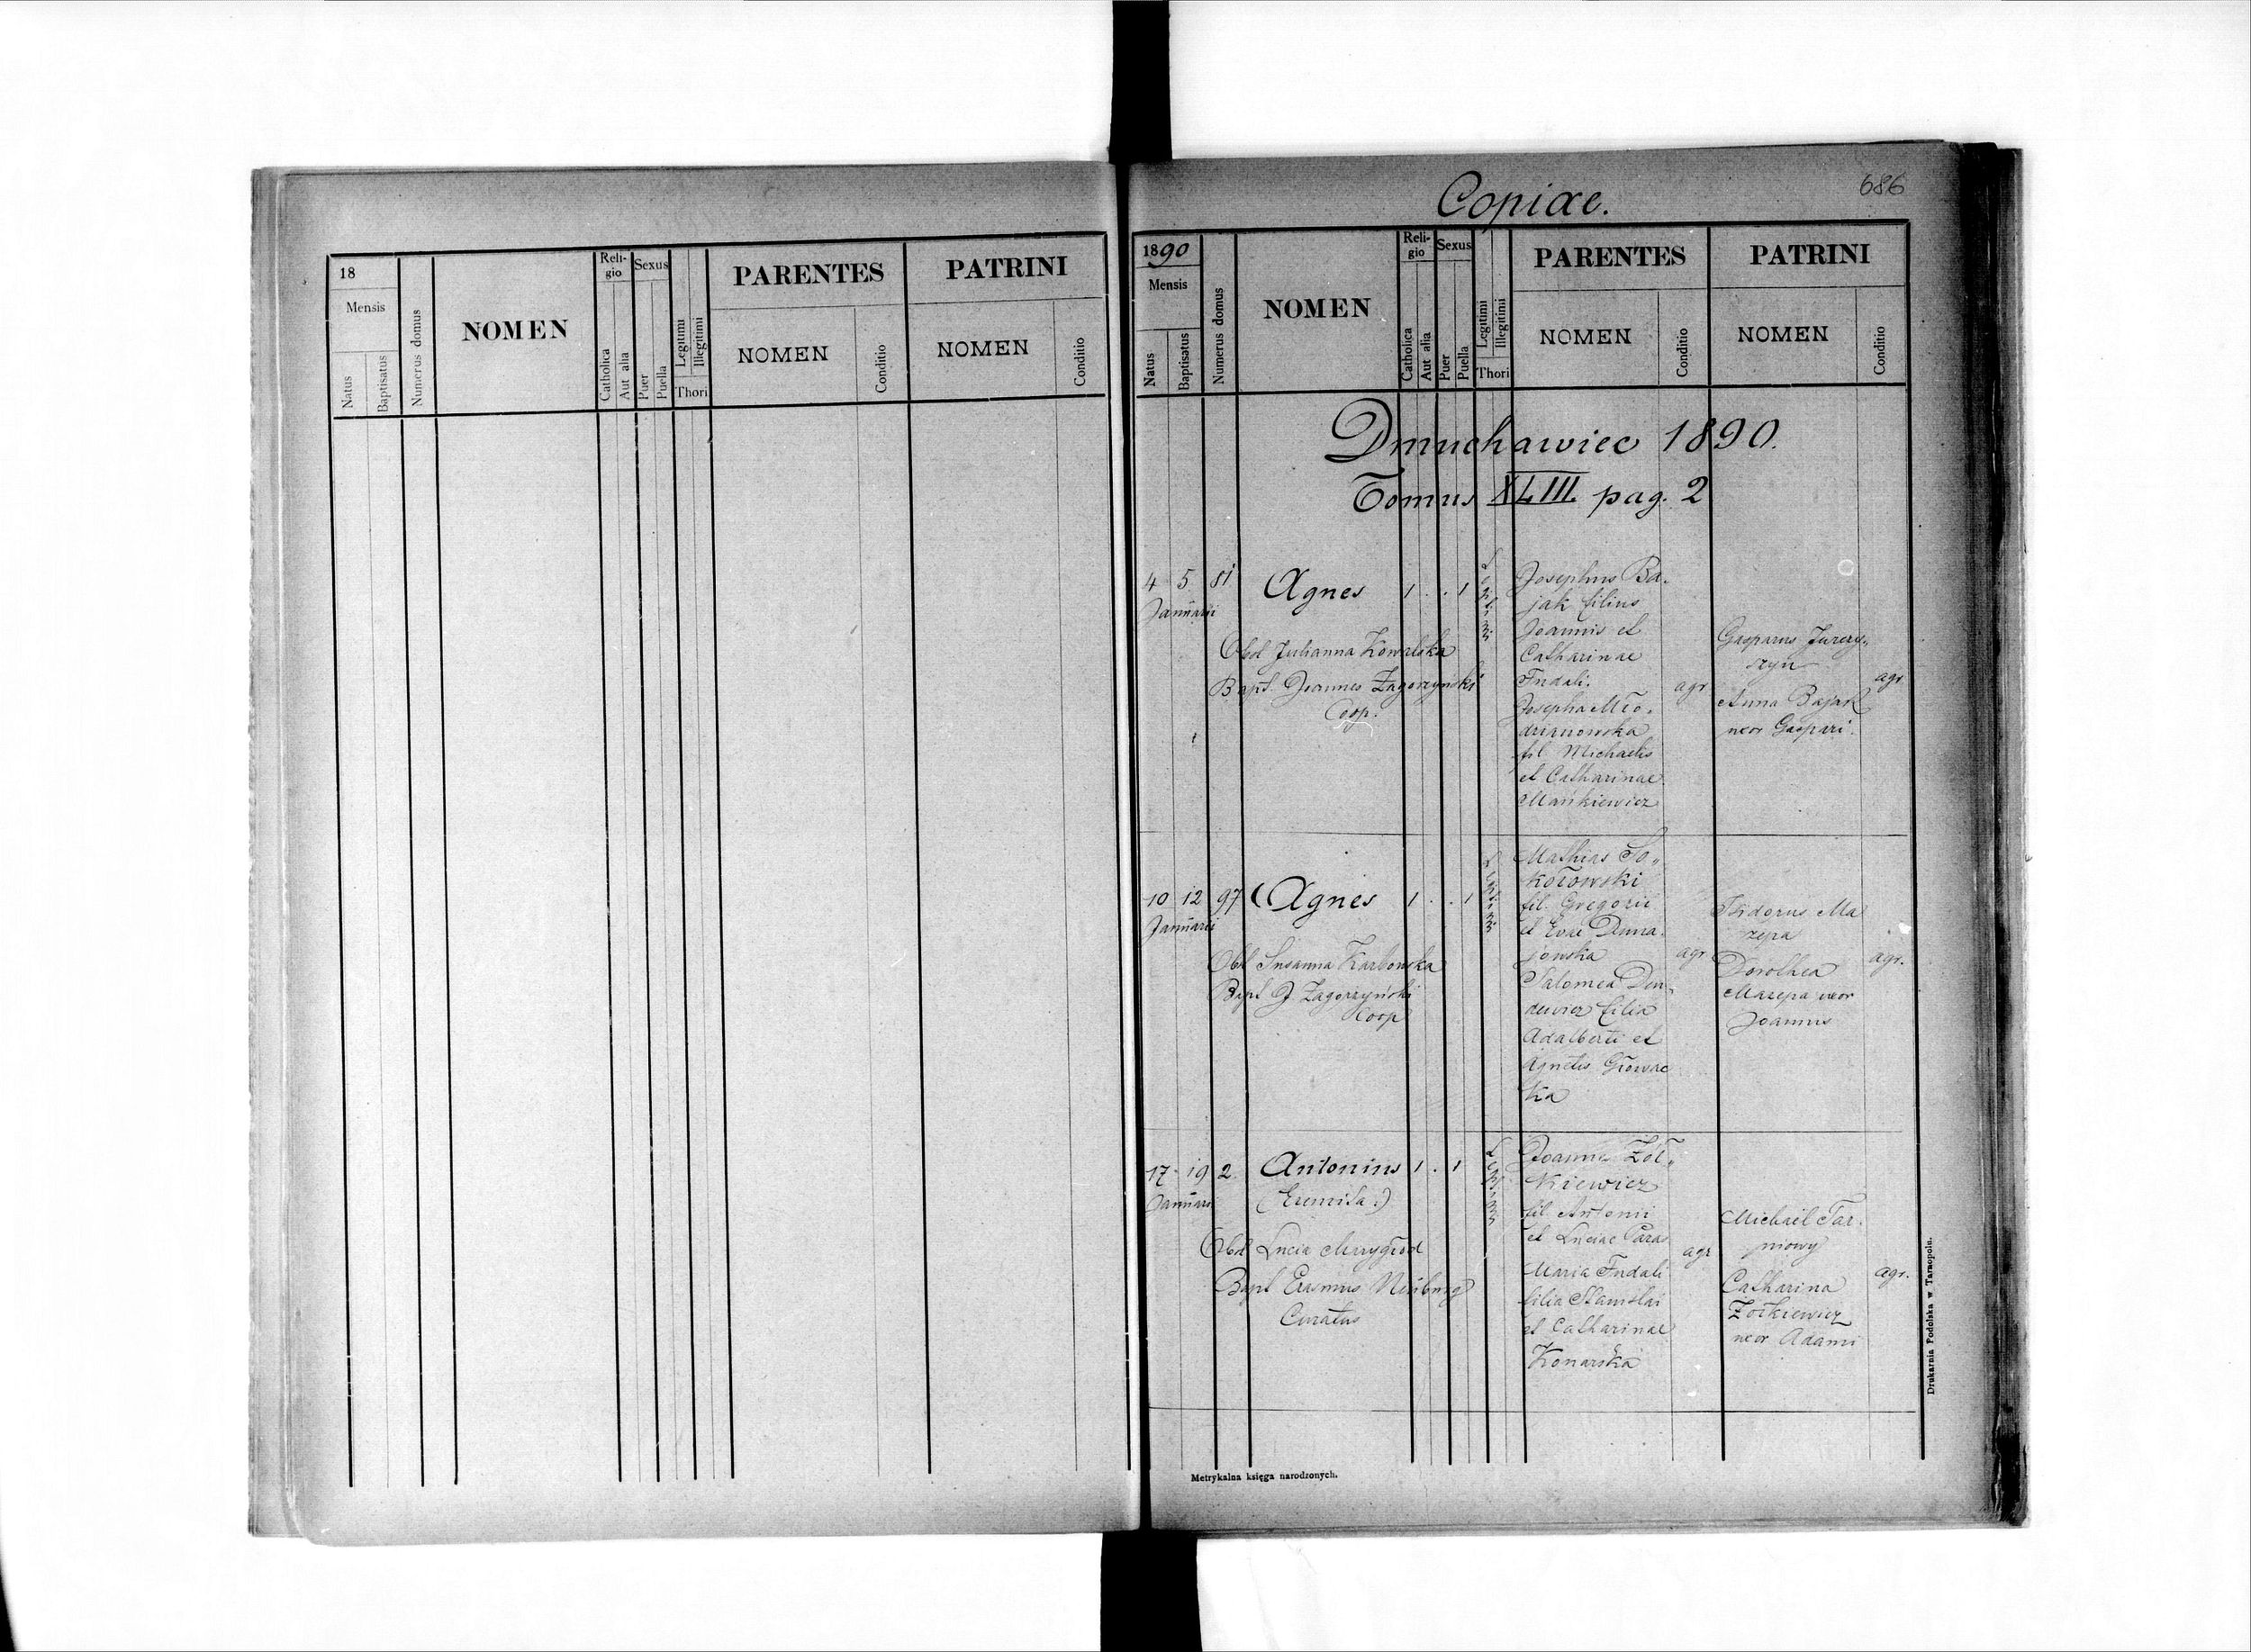 18
Mensis
Natus
Baptisatus
Numerus domus
NOMEN
Reli-
gio
Catholica
Aut alia
Sexus
Puer
Puella
Legitimi
Illegitimi
Thori
PARENTES
NOMEN
Conditio
PATRINI
NOMEN
Conditio
Copiae.
686
1890
Mensis
Natus
Baptisatus
Numerus domus
NOMEN
Reli-
gio
Catholica
Aut alia
Sexus
Puer
Puella
Legitimi
Illegitimi
Thori
PARENTES
NOMEN
Conditio
PATRINI
NOMEN
Conditio
Dmuchawiec 1890.
Tomus XLIII pag. 2
4 5 81 Agnes 1 . . 1
Januarii
Legitimi
Obst Julianna Kowalska
Bapt. Joannes Zagorzyński
Coop.
Josephus Ba-
jak filius
Joannis et
Catharinae
Fudali.
Josepha Mło-
dzianowska
fil Michaelis
et Catharinae
Mańkiewicz
agr
Gasparus Jurczy-
szyn
Anna Bajak
uxor Gaspari.
agr
10 12 97 Agnes 1 . . 1
Januarii
Legitimi
Obst Susanna Karbowska
Bapt J. Zagorzyński
Coop
Mathias So-
kołowski
fil. Gregorii
et Evae Duna-
jowska
Salomea Den-
dewicz filia
Adalberti et
Agnetis Głowac
ka
agr.
Isidorus Ma
zepa
Dorothea
Mazepa uxor
Joannis
agr.
17 19 2 Antonius 1 . 1
Januarii
(Eremita.)
Legitimi
Obst Lucia
Bapt Erasmus Neuburg
Curatus
Joannes Żoł-
kiewicz
fil Antonii
et Luciae Paras
Maria Fudali
filia Stanislai
et Catharinae
Konarska
agr
Michael Tar-
nowy
Catharina
Żołkiewicz
uxor Adami
agr.
Metrykalna księga narodzonych.
Drukarnia Podolska w Tarnopolu.